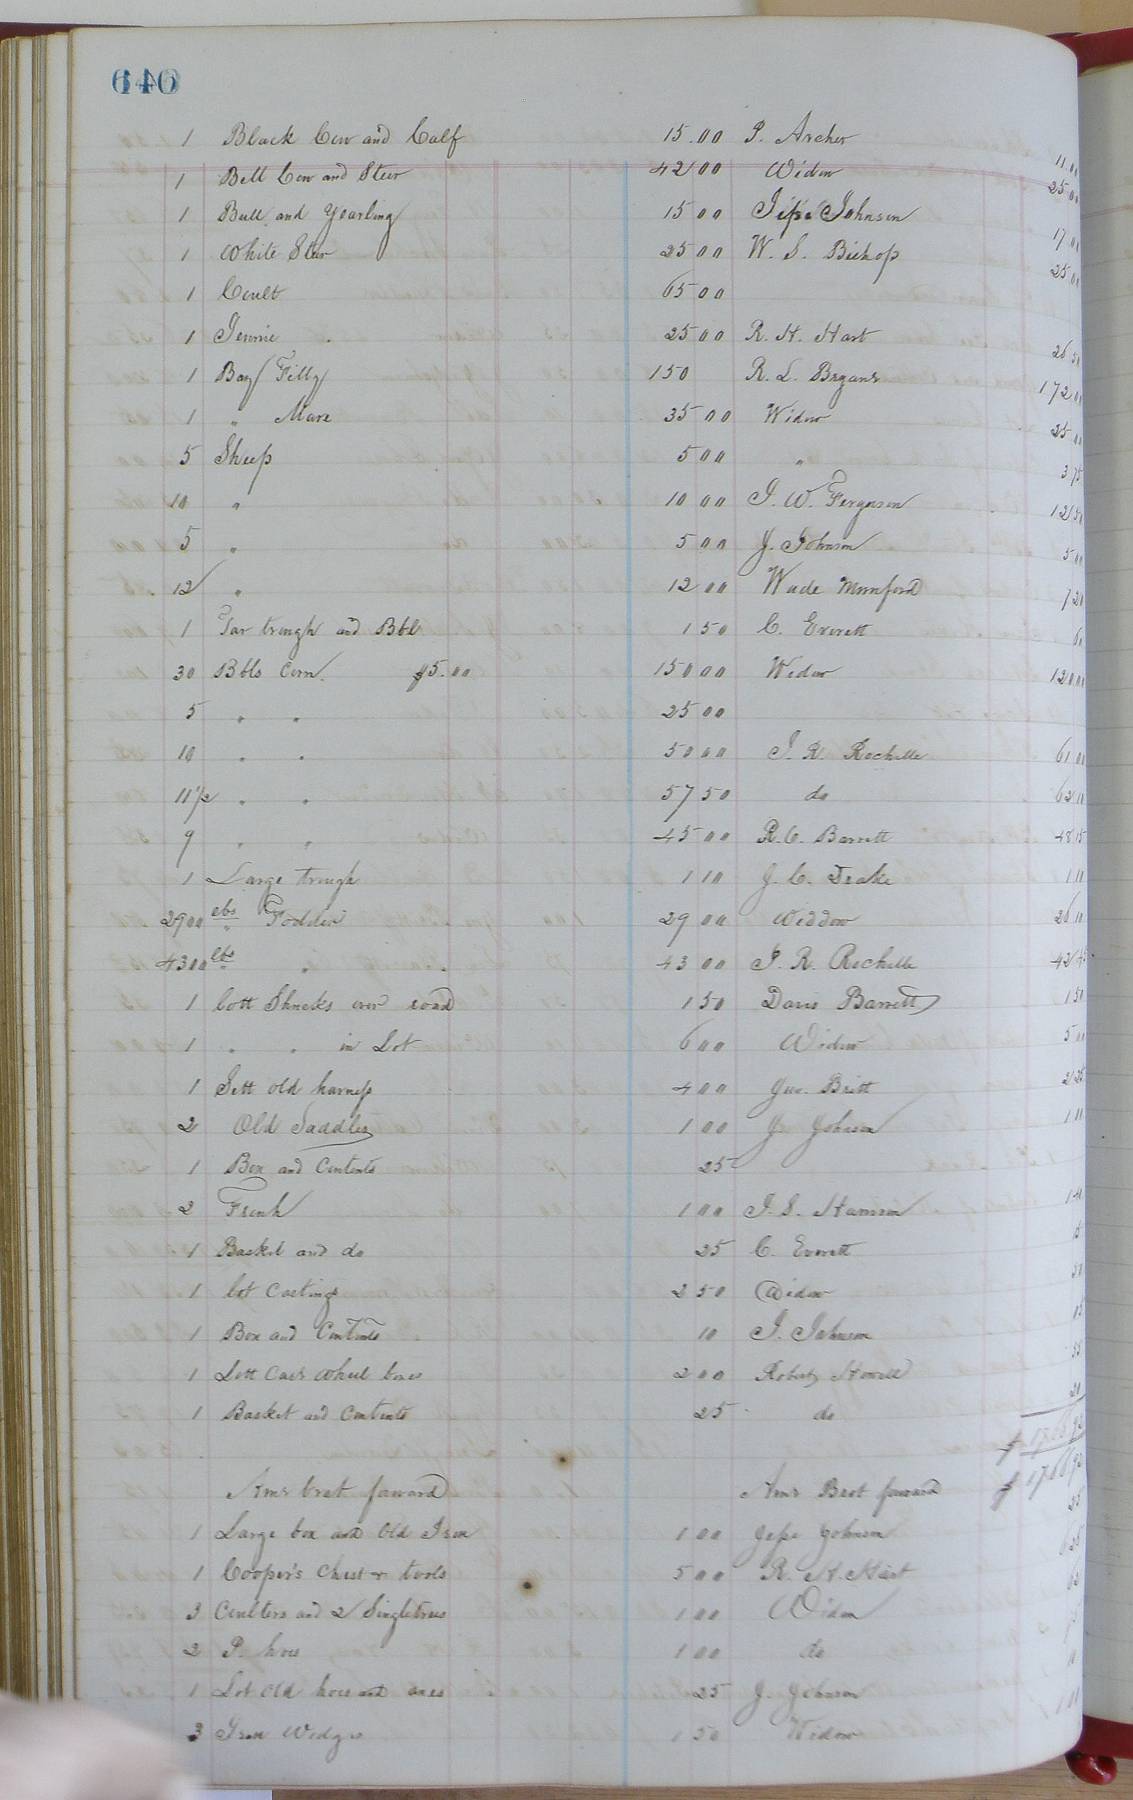 640
1 Black Cow and Calf 15.00 J. Archer 11.00
1 Bell Cow and Steer 42 00 Widow 25 00
1 Bull and Yearling 15 00 Jesse Johnson 17 00
1 White Steer 25 00 W. S. Bishop 25 00
1 Coult 65 00
1 Jennie 25 00 R. H. Hart 26 50
1 Bay Filly 150 R. L. Bryant 172 00
1 " Mare 35 00 Widow 25 00
5 Sheep 5 00 " 3 75
10 " 10 00 J. W. Ferguson 12 50
5 " 5 00 J. Johnson 5 00
12 " 12 00 Wade Mumford 7 20
1 Tar trough and Bbl 1 50 C. Everett
30 Bbls Corn $5.00 150 00 Widow 120 00
5 " " 25 00
10 " " 50 00 J. R. Rochelle 61 00
11 1/2 " " 57 50 do 62 10
9 " " 45 00 R. C. Barrett 48 15
1 Large trough 1 10 J. C. Drake 1 10
2900 lbs Fodder 29 00 Widdow 26 10
4300 lbs " 43 00 J. R. Rochelle 42
1 Lott Shucks over road 1 50 Davis Barrett 1 50
1 " " in Lot 6 00 Widow 5 00
1 Sett old harness 4 00 Geo. Britt 2 25
2 Old Saddles 1 00 J. Johnson 1 00
1 Box and Contents 25
2 1 00 J. S.
1 Basket and do 25 C. Everett
1 lot Castings 2 50 Widow
1 Box and Contents 10 J. Johnson 05
1 Lott Cart Wheel boxes 2 00 Robert Howell 55
1 Basket and Contents 25 do 20
$
Amt brat forward Amt Brot forward $
1 Large box and Old Iron 1 00 Jesse Johnson 25
1 Cooper's Chest + tools 5 00 R. H. Hart 6 25
3 Coulters and 2 Singletrees 1 00 Widow
2 P. hoes 1 00 do
1 Lot Old hoes and axes 25 J. Johnson
3 Iron Wedges 1 50 Widow 1 00